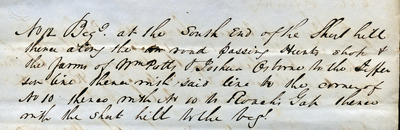 No 12 Begg. at the South End of the Shut hill
thence along the road passing Hunts shop &
the farms of Wm Potts, & Joshua Osborne to the Jeffer
son line thence with said line to the corner of
No 10, thence with No 10 to Roach's Gap thence
with the shut hill to the begg.